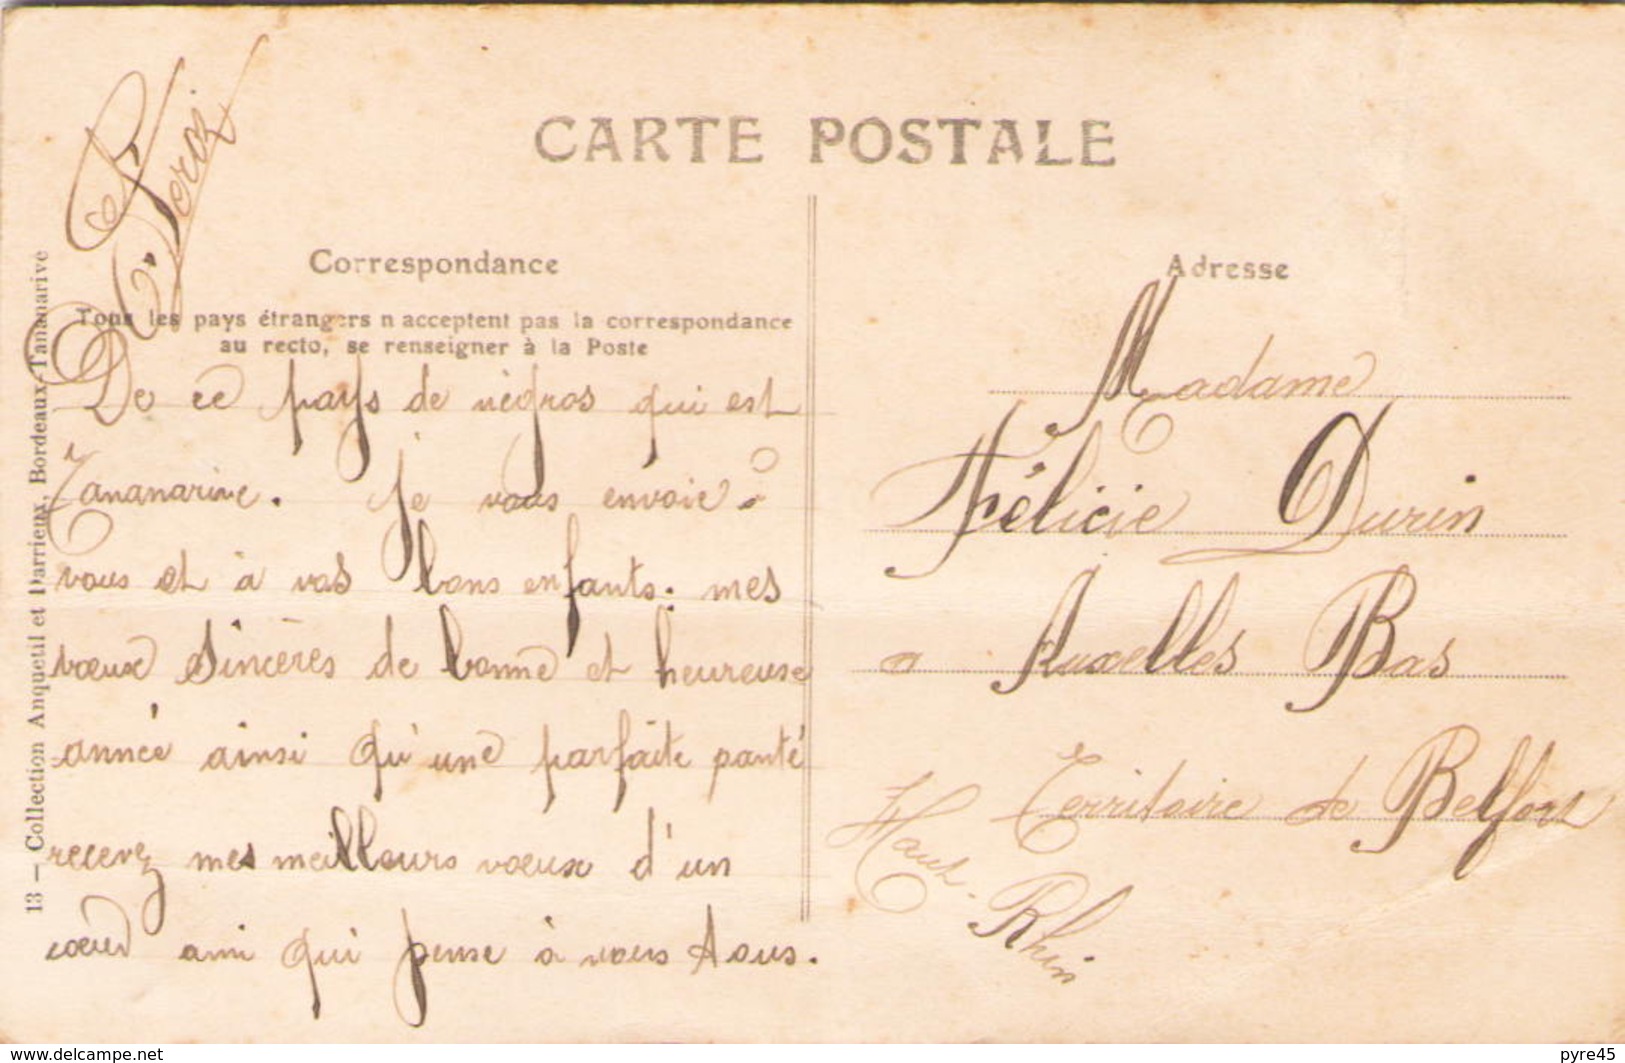 CARTE POSTALE
Correspondance
Tous les pays étrangers n acceptent pas la correspondance
au recto, se renseigner à la Poste
De ce pays de nègros qui est
Tananarive. Je vous envoie à
vous et à vos bons enfants. mes
vœux sincères de bonne et heureuse
année ainsi qu'une parfaite santé
recevez mes meilleurs vœux d'un
cœur ami qui pense à vous tous.
Adresse
Madame
Félicie Durin
a Auxelles Bas
Territoire de Belfort
Haut-Rhin
13 — Collection Anquetil et Darrieux, Bordeaux-Tananarive
www.delcampe.net
pyre45